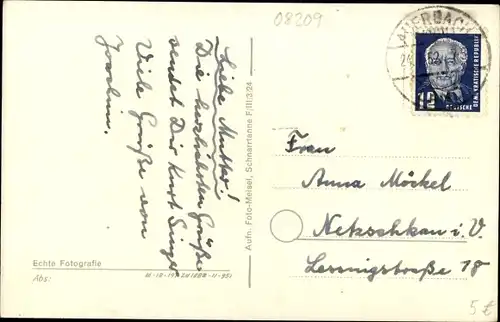 08209
Liebe Mutter!
Die herzlichsten Grüße
sendet Dir Kurt Singer
Viele Grüße von
Joachim.
Aufn. Foto-Meisel, Schnarrtanne F/III/3/24
AUERBACH
12
DEUTSCHE
DEMOKRATISCHE REPUBLIK
Frau
Anna Möckel
Netzschkau i. V.
Lessingstraße 18
Echte Fotografie
Abs:
5€